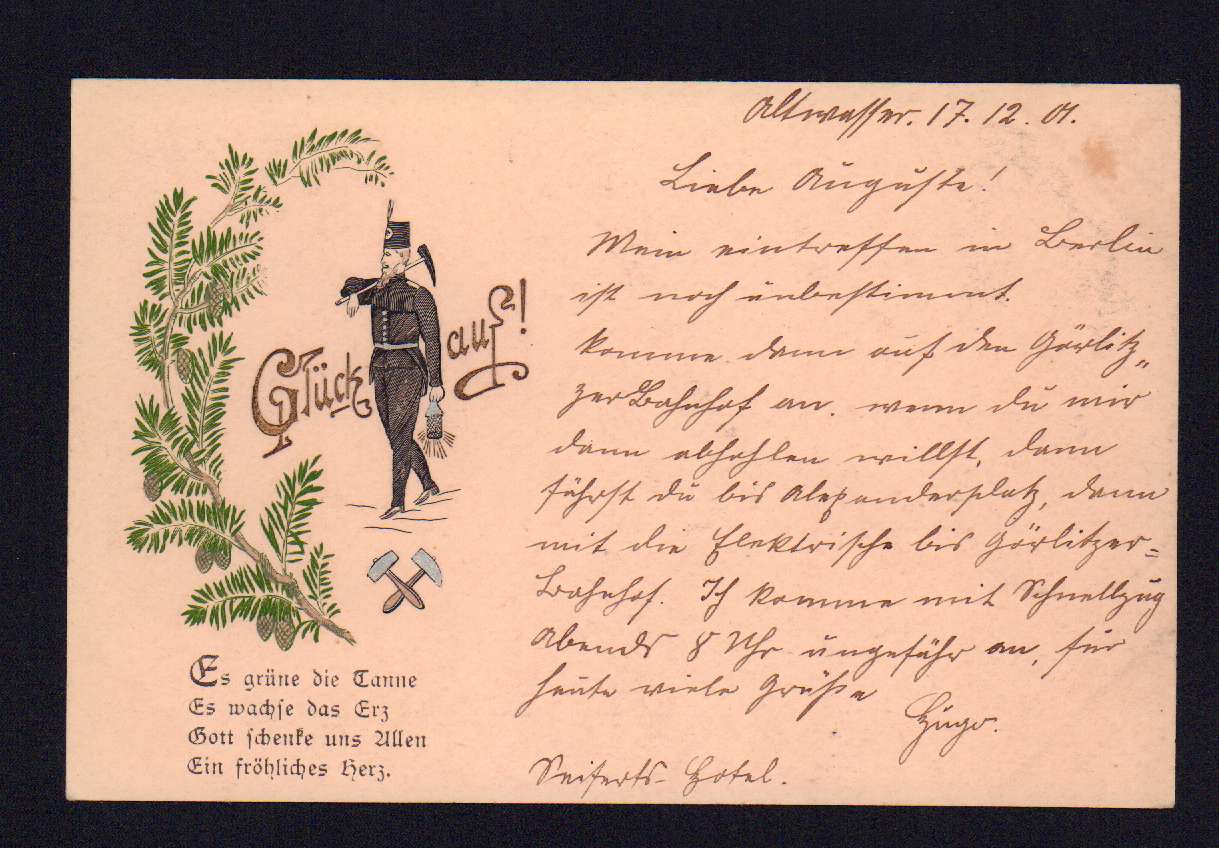 Altwasser. 17. 12. 01.
Liebe Auguste!
Mein eintreffen in Berlin
ist noch unbestimmt.
komme dann auf den Görlitz„
zer Bahnhof an. wenn du mir
dann abhohlen willst, dann
fährst du bis Alexandersplatz, dann
mit die Elektrische bis Görlitzer=
Bahnhof. Ich komme mit Schnellzug
Abends 8 Uhr ungefähr an, für
heute viele Grüße
Hugo.
Seiferts-Hotel.
Glück auf!
Es grüne die Tanne
Es wachse das Erz
Gott schenke uns Allen
Ein fröhliches Herz.